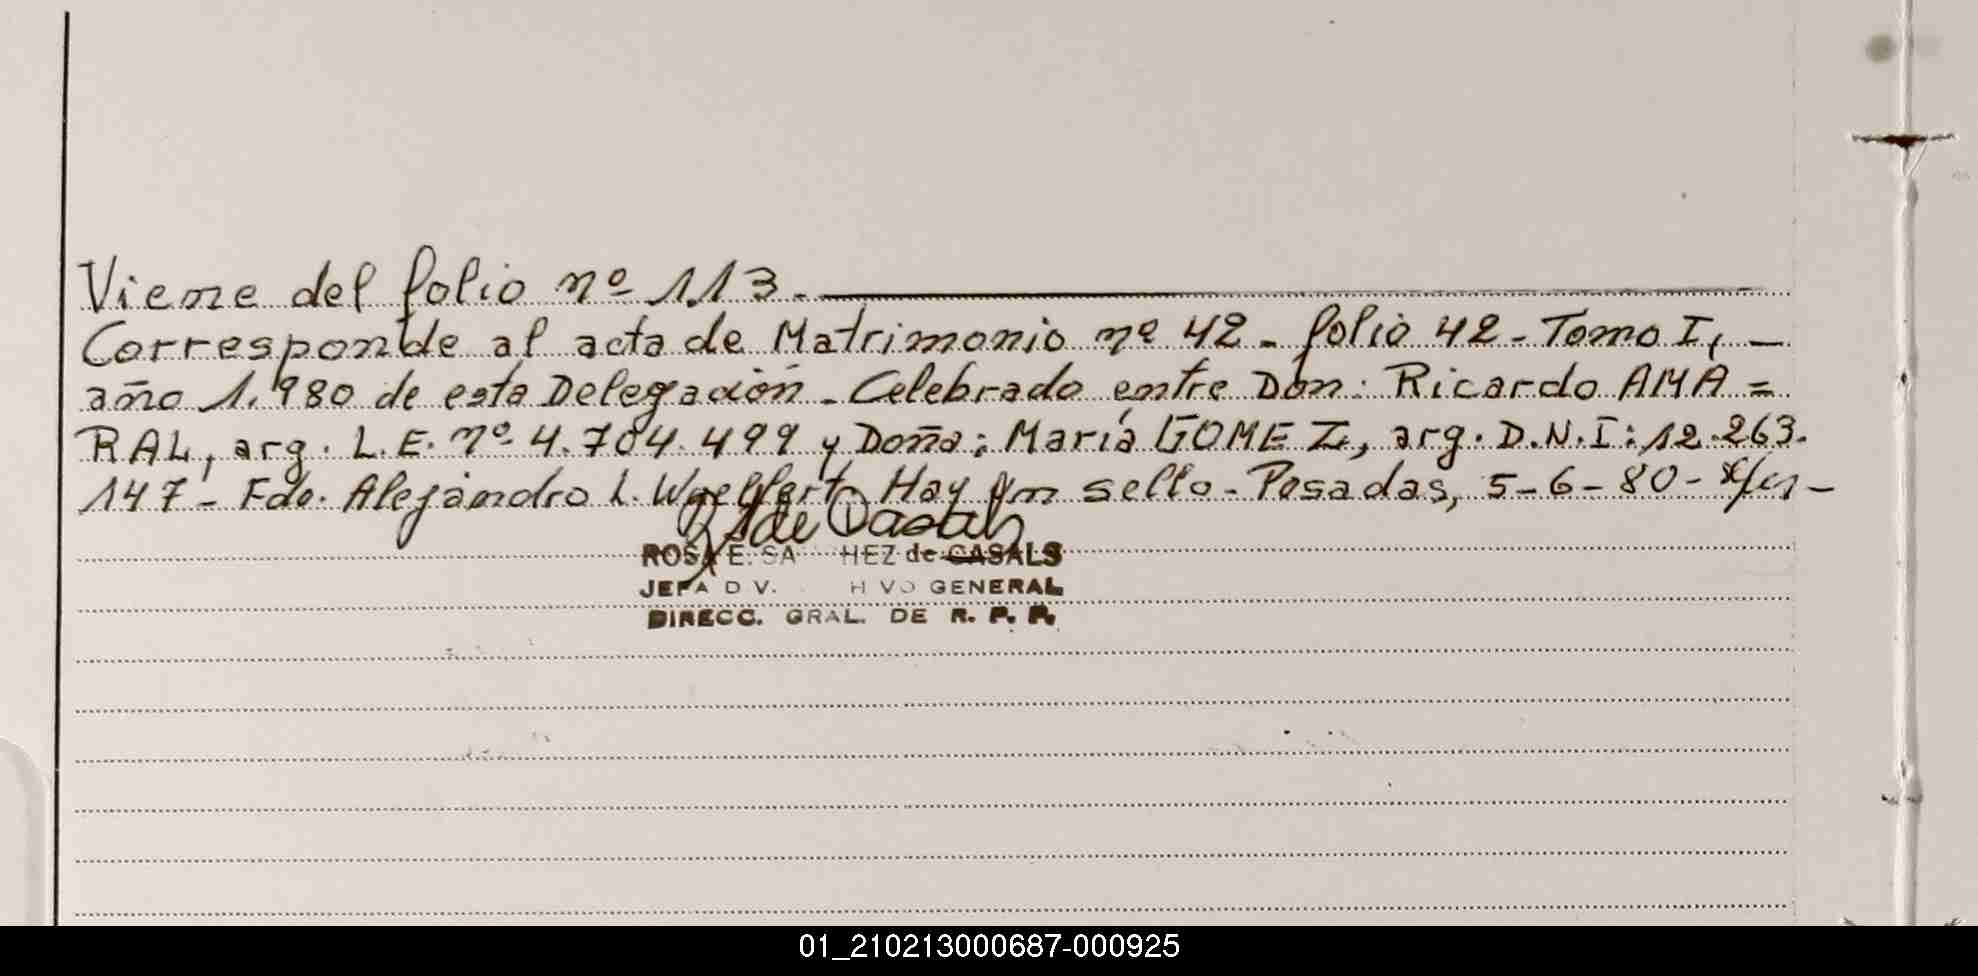 Viene del folio nº 113.
Corresponde al acta de Matrimonio nº 42 - folio 42 - Tomo I, -
año 1.980 de esta Delegación - Celebrado entre Don: Ricardo AMA =
RAL, arg. L.E. nº 4.704.499 y Doña: María GOMEZ, arg. D.N.I: 12.263.
147 - Fdo. Alejandro L. Hay un sello - Posadas, 5-6-80 -
de Casals
ROSA E. SA HEZ de CASALS
JEFA D V. H VO GENERAL
DIRECC. GRAL. DE R. P. P.
01_210213000687-000925